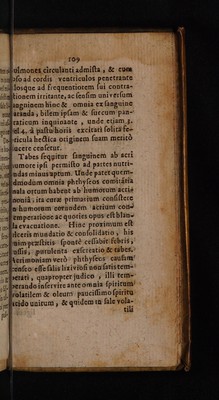 109
pulmones circulanti admista, & cum
ipso ad cordis ventriculos penetrante
eosque ad frequentiorem sui contra-
ctionem irritante, ac sensim universum
sanguinem hinc & omnia ex sanguine
paranda, bilem ipsam & succum pan-
creaticum inquinante, unde etiam 3.
vel 4. à pastu horis excitari solita fe-
bricula hectica originem suam meritò
ducere censetur.
Tabes sequitur sanguinem ab acri
humore ipsi permisto ad partes nutri-
endas minus aptum. Unde patet quem-
admodum omnia phthyseos comitātia
mala ortum habent ab humorum acri-
moniâ; ita curæ primarium consistere
in humorum eorundem acrium con-
temperatione ac quoties opus est blan-
da evacuatione. Hinc proximum est
ulceris mundatio & consolidatio, his
enim præstitis spontè cessabit febris,
tussis, purulenta exscreatio & tabes.
Acrimoniam verò phthyseos causam
censeo esse salis lixivosi non satis tem-
perati, quapropter judico, illi tem-
perando inservire ante omnia spiritum
volatilem & oleum paucissimo spiritu
acido unitum, & quidem in sale vola-
tili